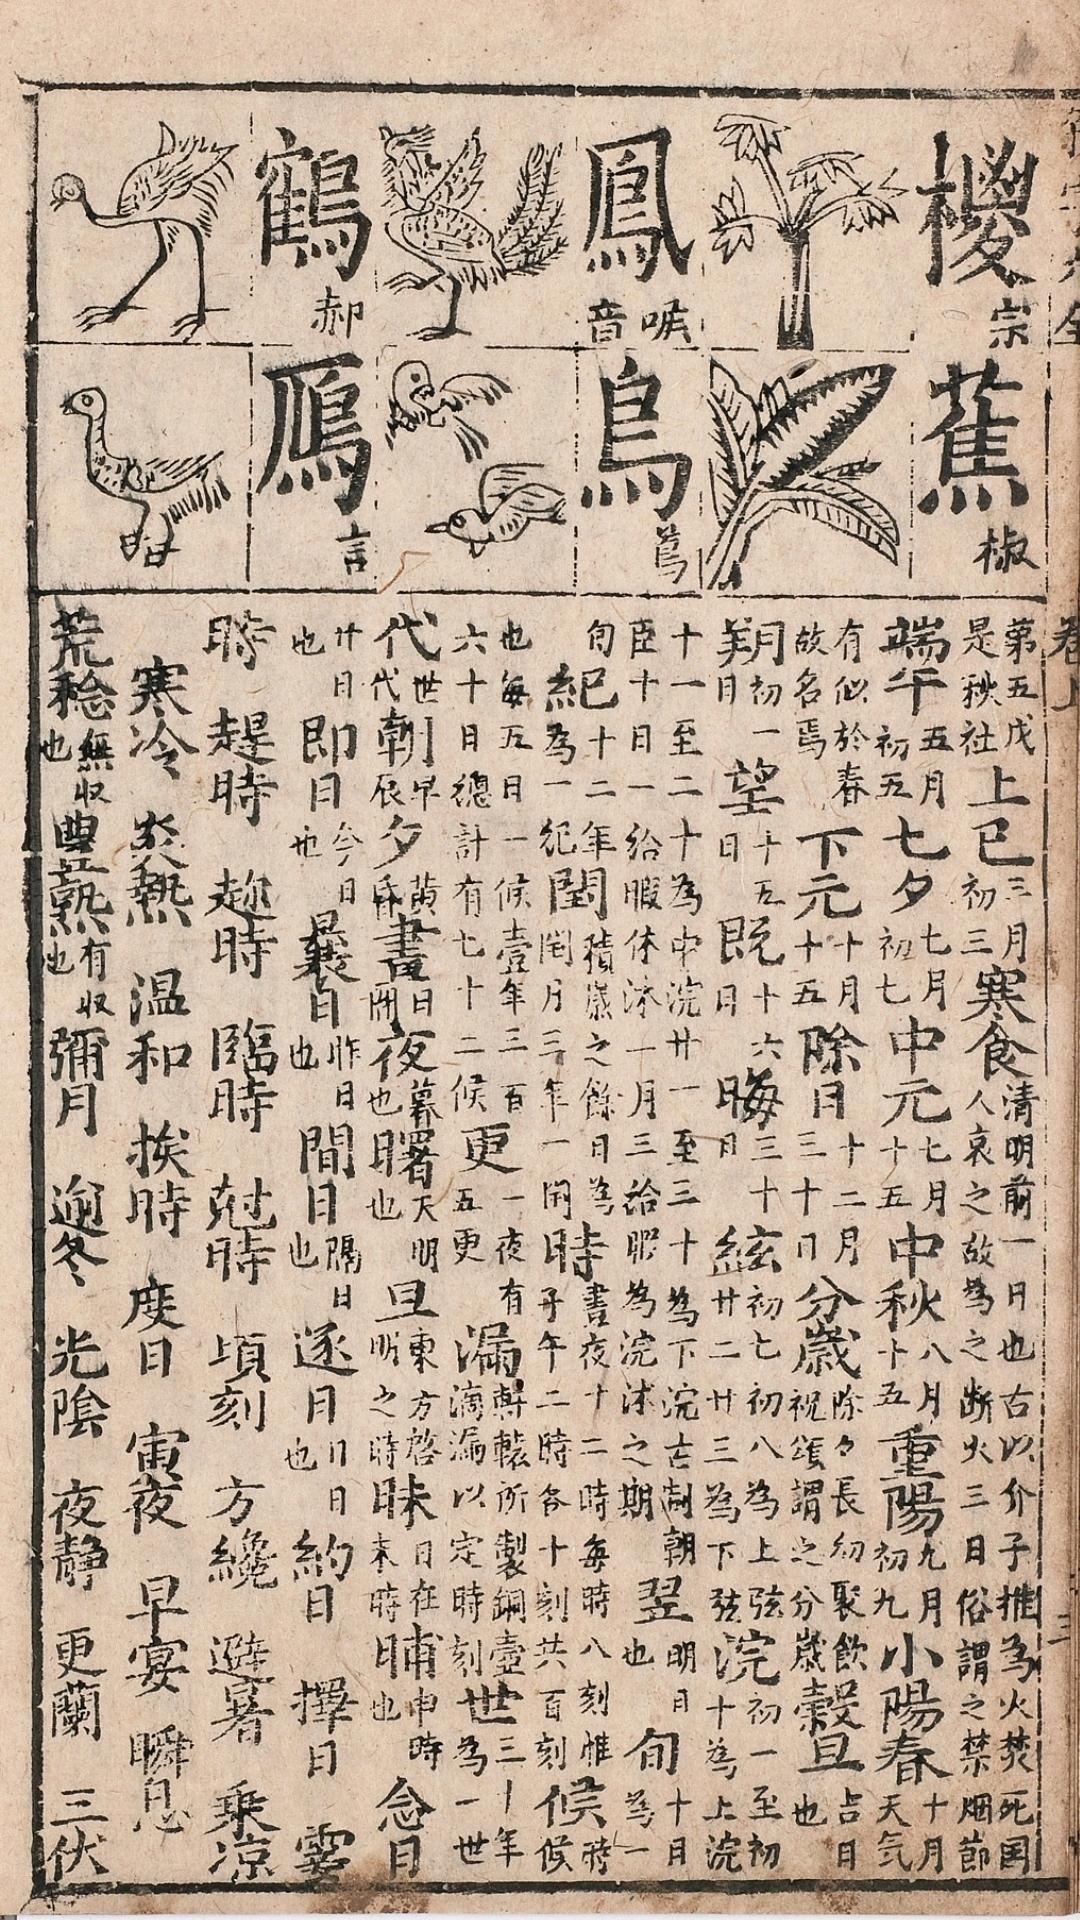 椶 宗
鳳 㖡音
鶴 郝
蕉 椒
鳥 蔦
鴈 言
第五戊是秋社 上巳 三月初三 寒食 清明前一日也古以介子推為火焚死国人哀之故為之断火三日俗謂之禁烟節
端午 五月初五 七夕 七月初七 中元 七月十五 中秋 八月十五 重陽 九月初九 小陽春 十月天气
有似於春故名焉 下元 十月十五 除日 十二月三十日 分歳 除夕長幼聚飲祝頌謂之分歳 穀旦 占日也
朔 月初一日 望 十五日 既 十六日 晦 三十日 絃 初七初八為上弦廿二廿三為下弦 浣 初一至初十為上浣
十一至二十為中浣廿一至三十為下浣古制朝臣十日一給暇休沐一月三給暇為浣沐之期 翌 明日也 旬 十日為一
旬 紀 十二年為一紀 閏 積歳之餘日為閏月三年一閏 時 晝夜十二時每時八刻惟子午二時各十刻共百刻 候 時候
也每五日一候壹年三百六十日總計有七十二候 更 一夜有五更 漏 轉轅所製銅壺滴漏以定時刻 世 三十年為一世
代 世代 朝 早辰 夕 黄昏 晝 日間 夜 暮也 曙 天明也 旦 東方啓明之時 昧 日在未時 晡 申時也 念日
廿日也 即日 今日也 曩日 昨日也 間日 隔日也 逐日 日日也 約日 擇日 霎
時 趕時 趂時 臨時 尅時 頃刻 方纔 避暑 乗凉
寒冷 炎熱 温和 挨時 度日 寅夜 早宴 瞬息
荒稔 無収也 豊熟 有収也 彌月 逾冬 光陰 夜静 更蘭 三伏